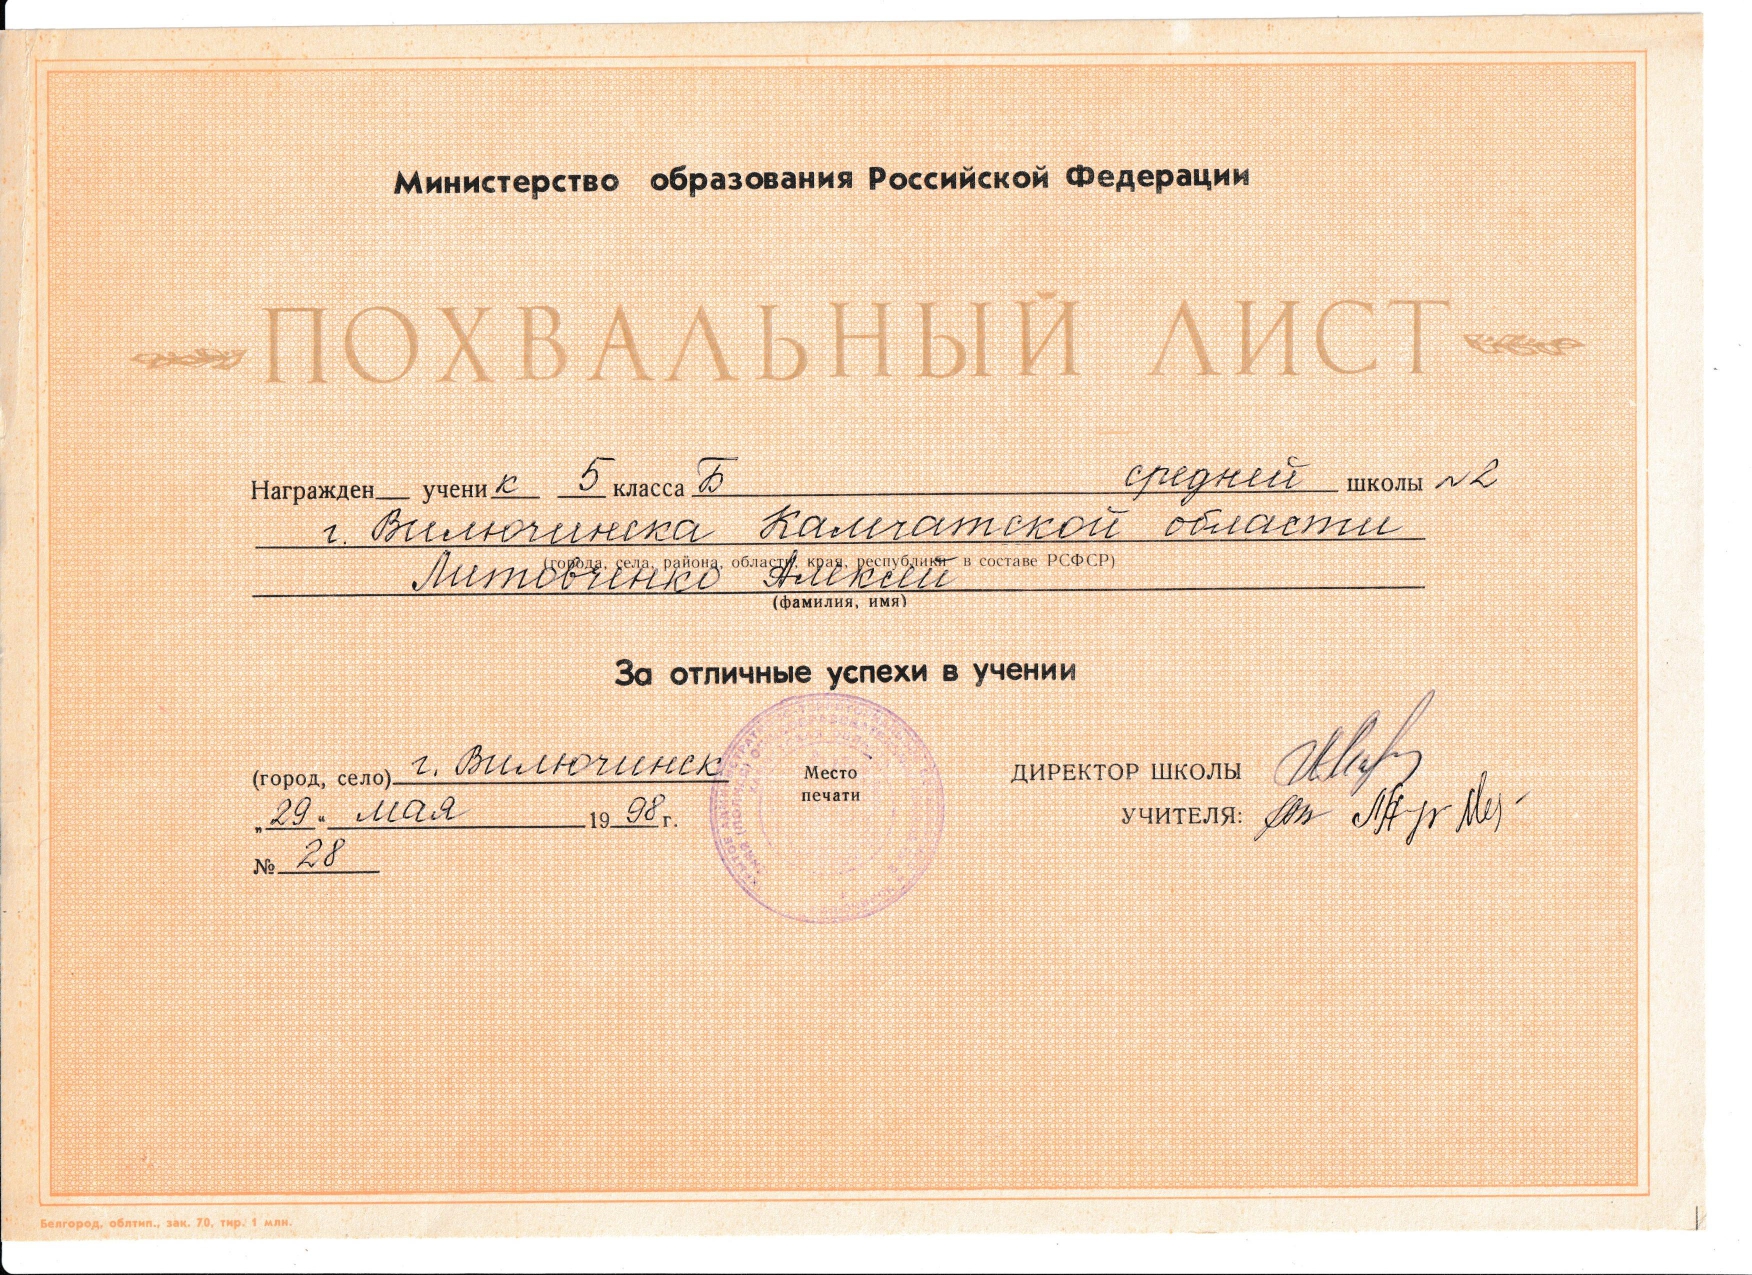 Министерство образования Российской Федерации
ПОХВАЛЬНЫЙ ЛИСТ
Награжден__ ученик 5 класса Б средней школы №2
г. Вилючинска Камчатской области
(города, села, района, области, края, республики в составе РСФСР)
Литовченко Алексей
(фамилия, имя)
За отличные успехи в учении
(город, село) г. Вилючинск
„29“ мая 1998 г.
№ 28
Место
печати
ДИРЕКТОР ШКОЛЫ
УЧИТЕЛЯ:
Белгород, облтип., зак. 70, тир. 1 млн.